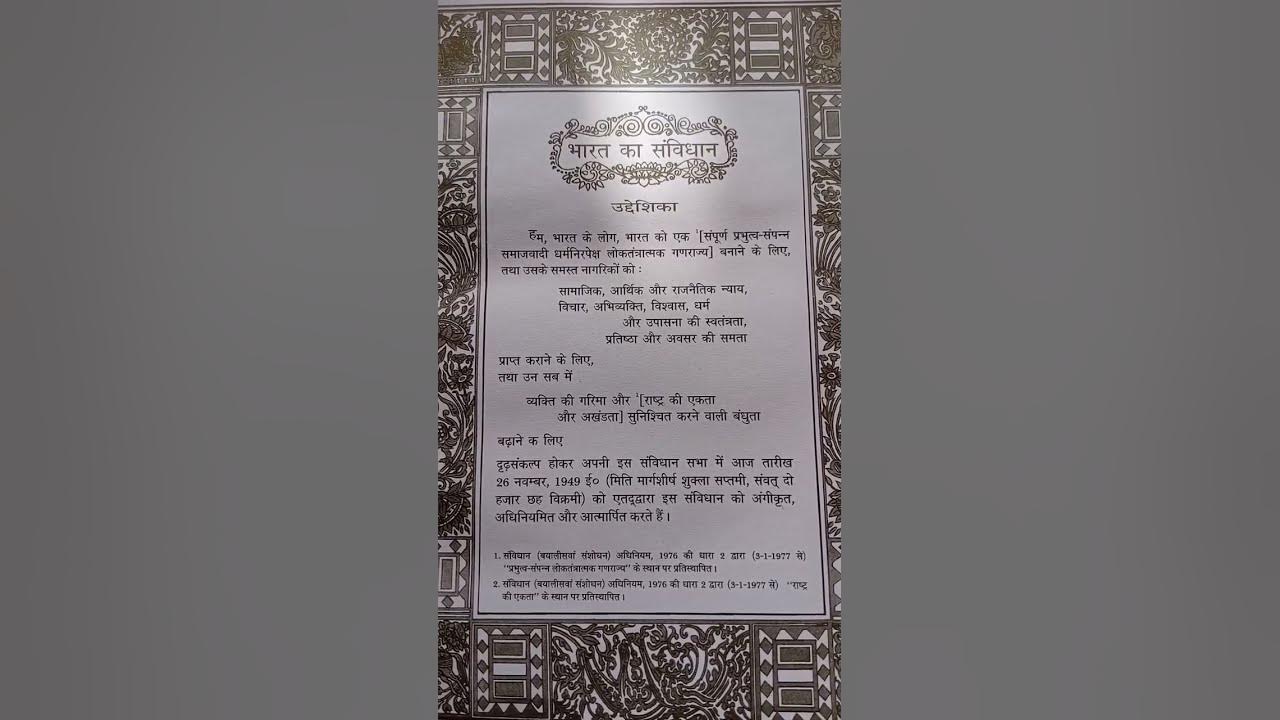 भारत का संविधान
उद्देशिका
हम, भारत के लोग, भारत को एक ¹[संपूर्ण प्रभुत्व-संपन्न
समाजवादी धर्मनिरपेक्ष लोकतंत्रात्मक गणराज्य] बनाने के लिए,
तथा उसके समस्त नागरिकों को :
सामाजिक, आर्थिक और राजनैतिक न्याय,
विचार, अभिव्यक्ति, विश्वास, धर्म
और उपासना की स्वतंत्रता,
प्रतिष्ठा और अवसर की समता
प्राप्त कराने के लिए,
तथा उन सब में
व्यक्ति की गरिमा और ²[राष्ट्र की एकता
और अखंडता] सुनिश्चित करने वाली बंधुता
बढ़ाने क लिए
दृढ़संकल्प होकर अपनी इस संविधान सभा में आज तारीख
26 नवम्बर, 1949 ई० (मिति मार्गशीर्ष शुक्ला सप्तमी, संवत् दो
हजार छह विक्रमी) को एतद्द्वारा इस संविधान को अंगीकृत,
अधिनियमित और आत्मार्पित करते हैं।
1. संविधान (बयालीसवां संशोधन) अधिनियम, 1976 की धारा 2 द्वारा (3-1-1977 से)
"प्रभुत्व-संपन्न लोकतंत्रात्मक गणराज्य" के स्थान पर प्रतिस्थापित।
2. संविधान (बयालीसवां संशोधन) अधिनियम, 1976 की धारा 2 द्वारा (3-1-1977 से) "राष्ट्र
की एकता" के स्थान पर प्रतिस्थापित।